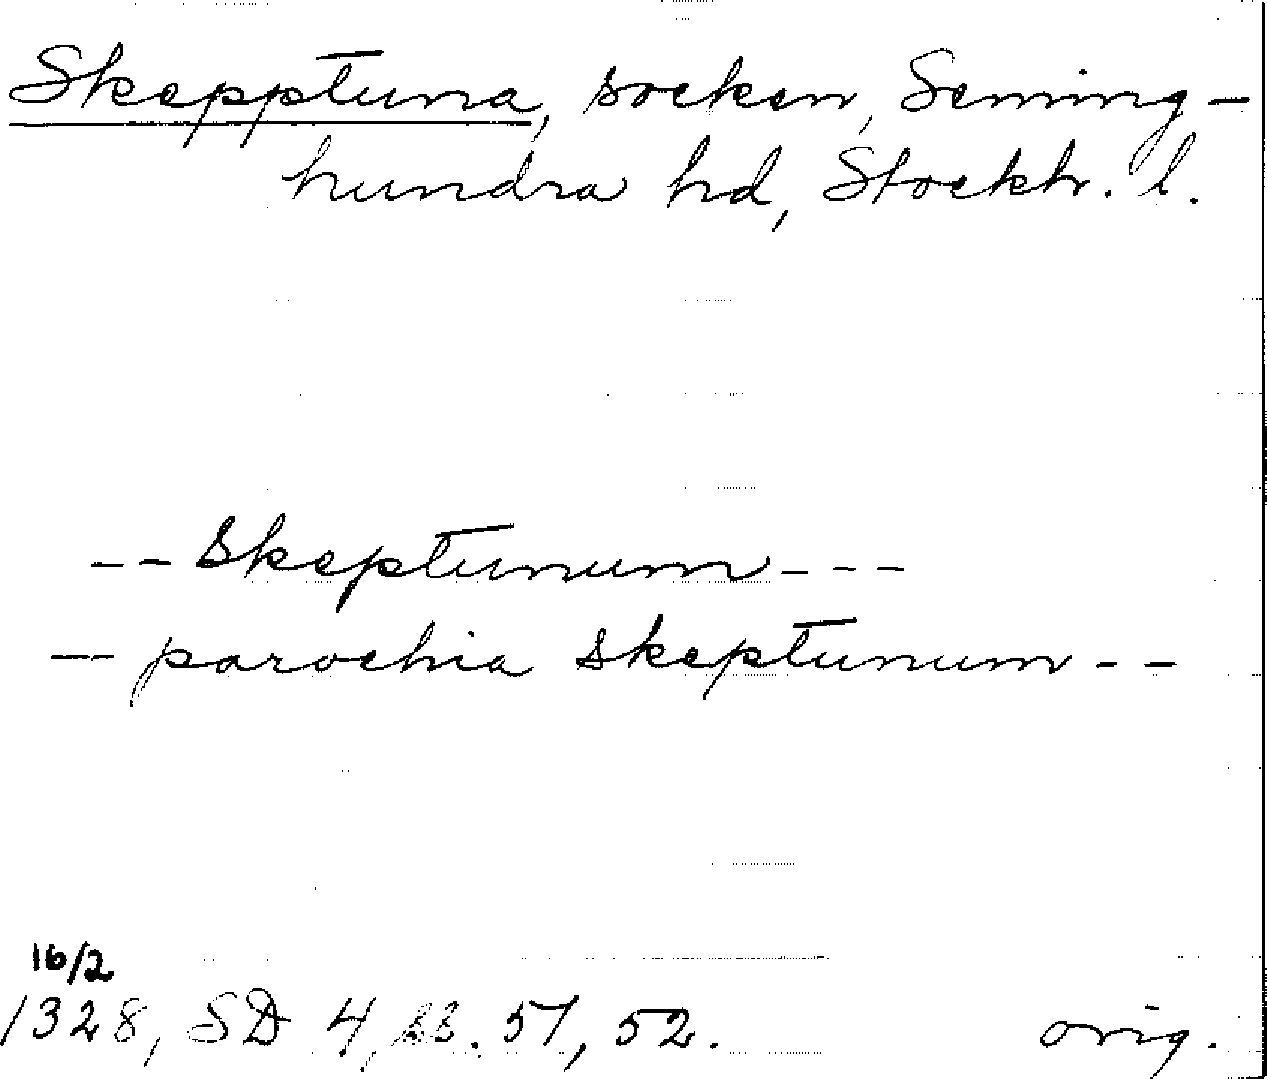 Skepptuna, socken, Seming-
hundra hd, Stockh. l.
-- Skeptunum ---
-- parochia Skeptunum --
16/2
1328, SD 4, ss. 51, 52. orig.